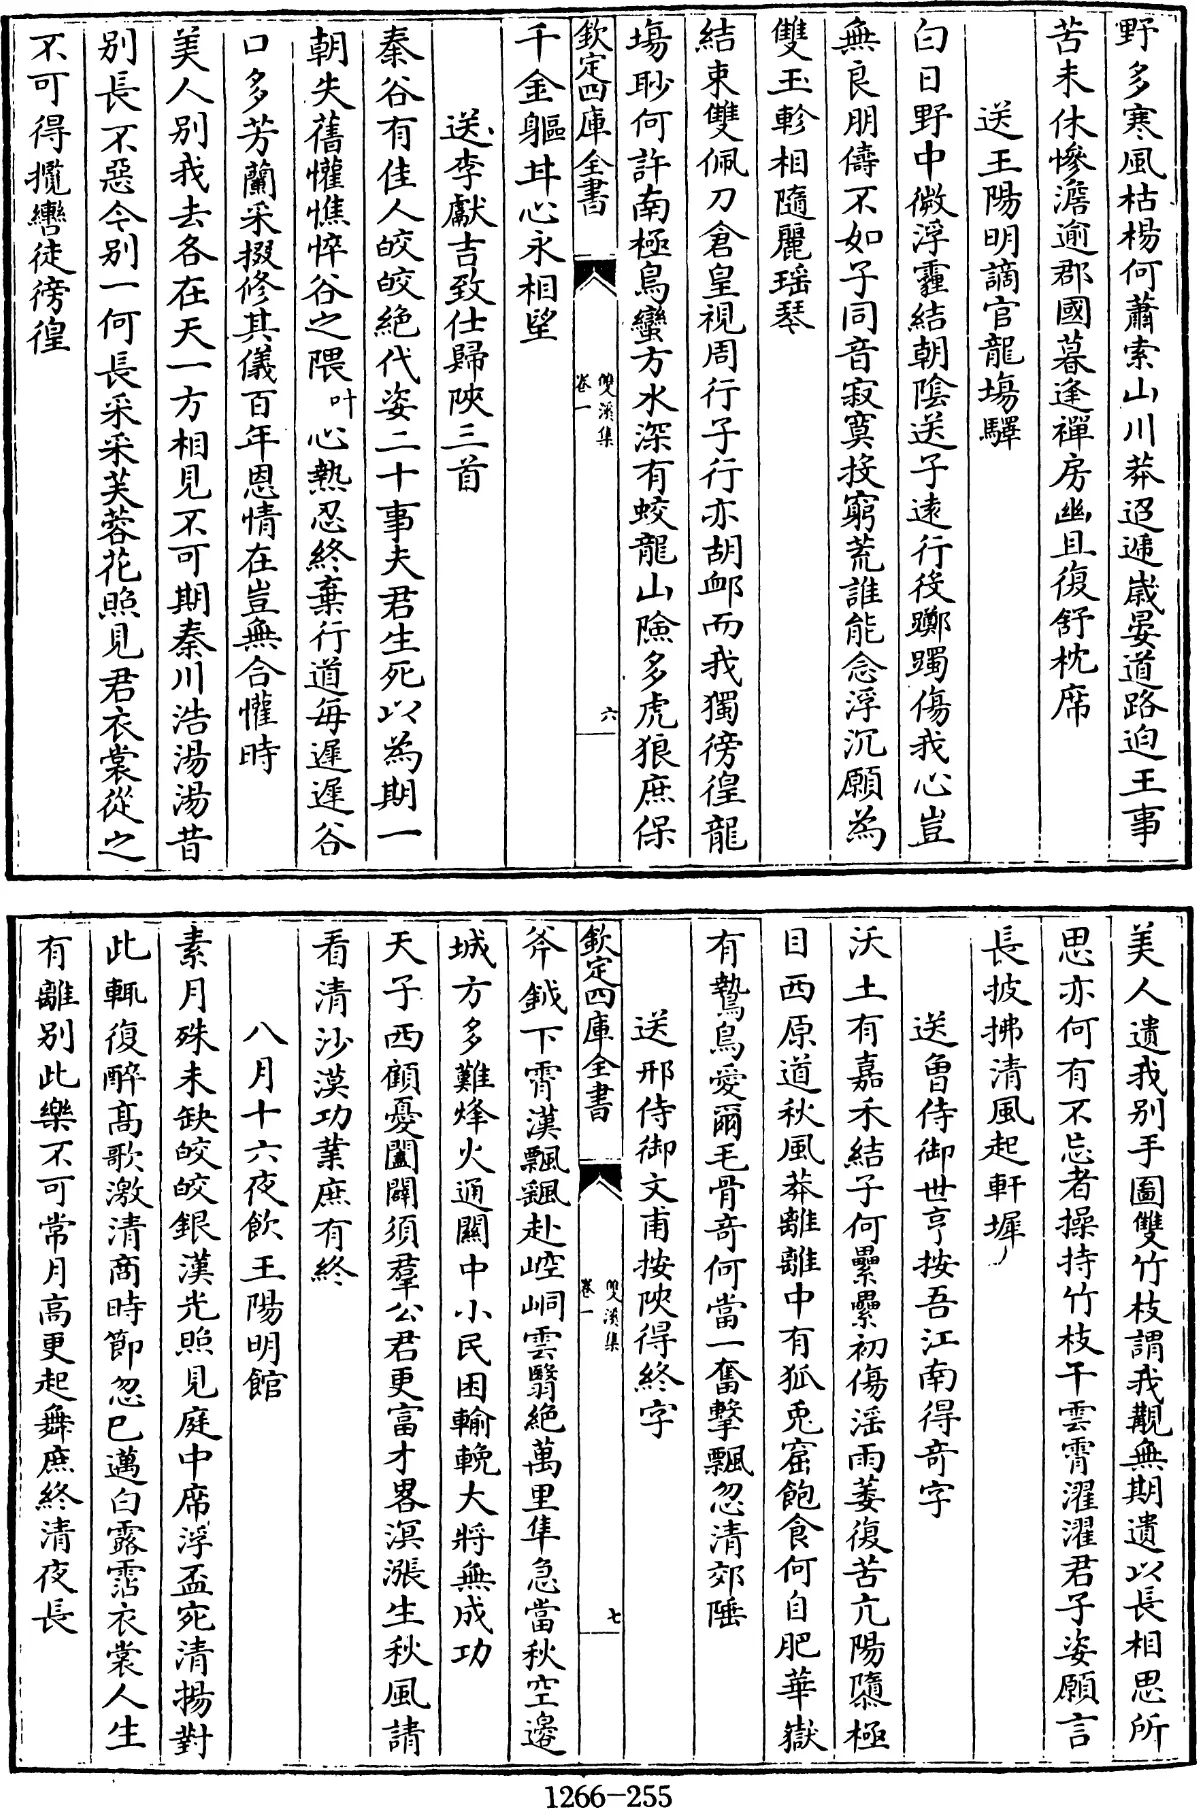 野多寒風枯楊何蕭索山川莽迢遞歲晏道路迫王事
苦未休慘澹逾郡國暮逢禪房幽且復舒枕席
送王陽明謫官龍塲驛
白日野中微浮霾結朝陰送子逺行役躑躅傷我心豈
無良朋儔不如子同音寂寞投窮荒誰能念浮沉願為
雙玉軫相隨麗瑶琴
結束雙佩刀倉皇視周行子行亦胡䘏而我獨徬徨龍
塲眇何許南極鳥蠻方水深有蛟龍山險多虎狼庶保
欽定四庫全書
雙溪集
卷一
六
千金軀丼心永相望
送李獻吉致仕歸陜三首
秦谷有佳人皎皎絶代姿二十事夫君生死以為期一
朝失舊懽憔悴谷之隈叶心熱忍終棄行道每遲遲谷
口多芳蘭采掇修其儀百年恩情在豈無合懽時
美人别我去各在天一方相見不可期秦川浩湯湯昔
别長不惡今别一何長采采芙蓉花照見君衣裳從之
不可得攬轡徒徬徨
美人遺我别手圖雙竹枝謂我覯無期遺以長相思所
思亦何有不忘者操持竹枝干雲霄濯濯君子姿願言
長披拂清風起軒墀
送曾侍御世亨按吾江南得竒字
沃土有嘉禾結子何纍纍初傷滛雨萎復苦亢陽隳極
目西原道秋風莽離離中有狐兎窟飽食何自肥華嶽
有鷙鳥愛爾毛骨竒何當一奮擊飄忽清郊陲
送邢侍御文甫按陜得終字
欽定四庫全書
雙溪集
卷一
七
斧鉞下霄漢飄飄赴崆峒雲翳絶萬里隼急當秋空邉
城方多難烽火通關中小民困輸輓大將無成功
天子西顧憂闔闢須羣公君更富才畧溟漲生秋風請
看清沙漠功業庶有終
八月十六夜飲王陽明館
素月殊未缺皎皎銀漢光照見庭中席浮盃宛清揚對
此輒復醉髙歌激清商時節忽已邁白露霑衣裳人生
有離别此樂不可常月高更起舞庶終清夜長
1266-255